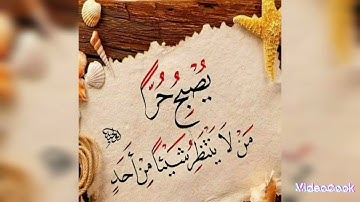 يُصْبِحُ حُرًّا
مَنْ لَا يَنْتَظِرُ شَيْئًا مِنْ أَحَدٍ
VideoCook